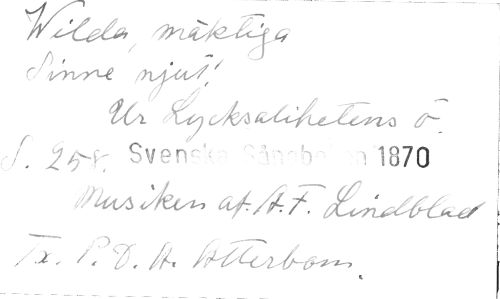 Wilda, mäktiga
Sinne njut!
Ur Lycksalihetens ö.
S. 258. Svenska Sångboken 1870
Musiken af A. F. Lindblad
Tx. P. D. A. Atterbom.